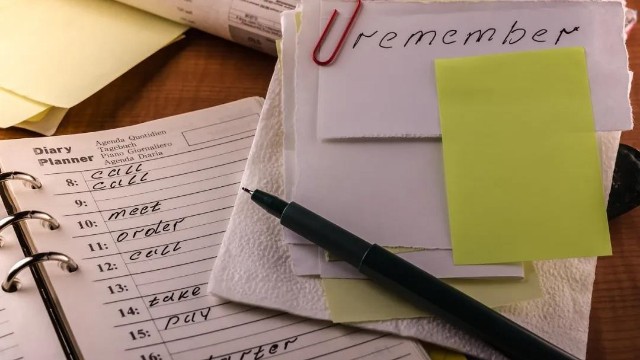 remember
Diary
Planner
Agenda Quotidien
Tagebuch
Piano Giornaliero
Agenda Diaria
call
8: call
9:
10: meet
11: order
12: call
13:
14: take
15: pay
16: